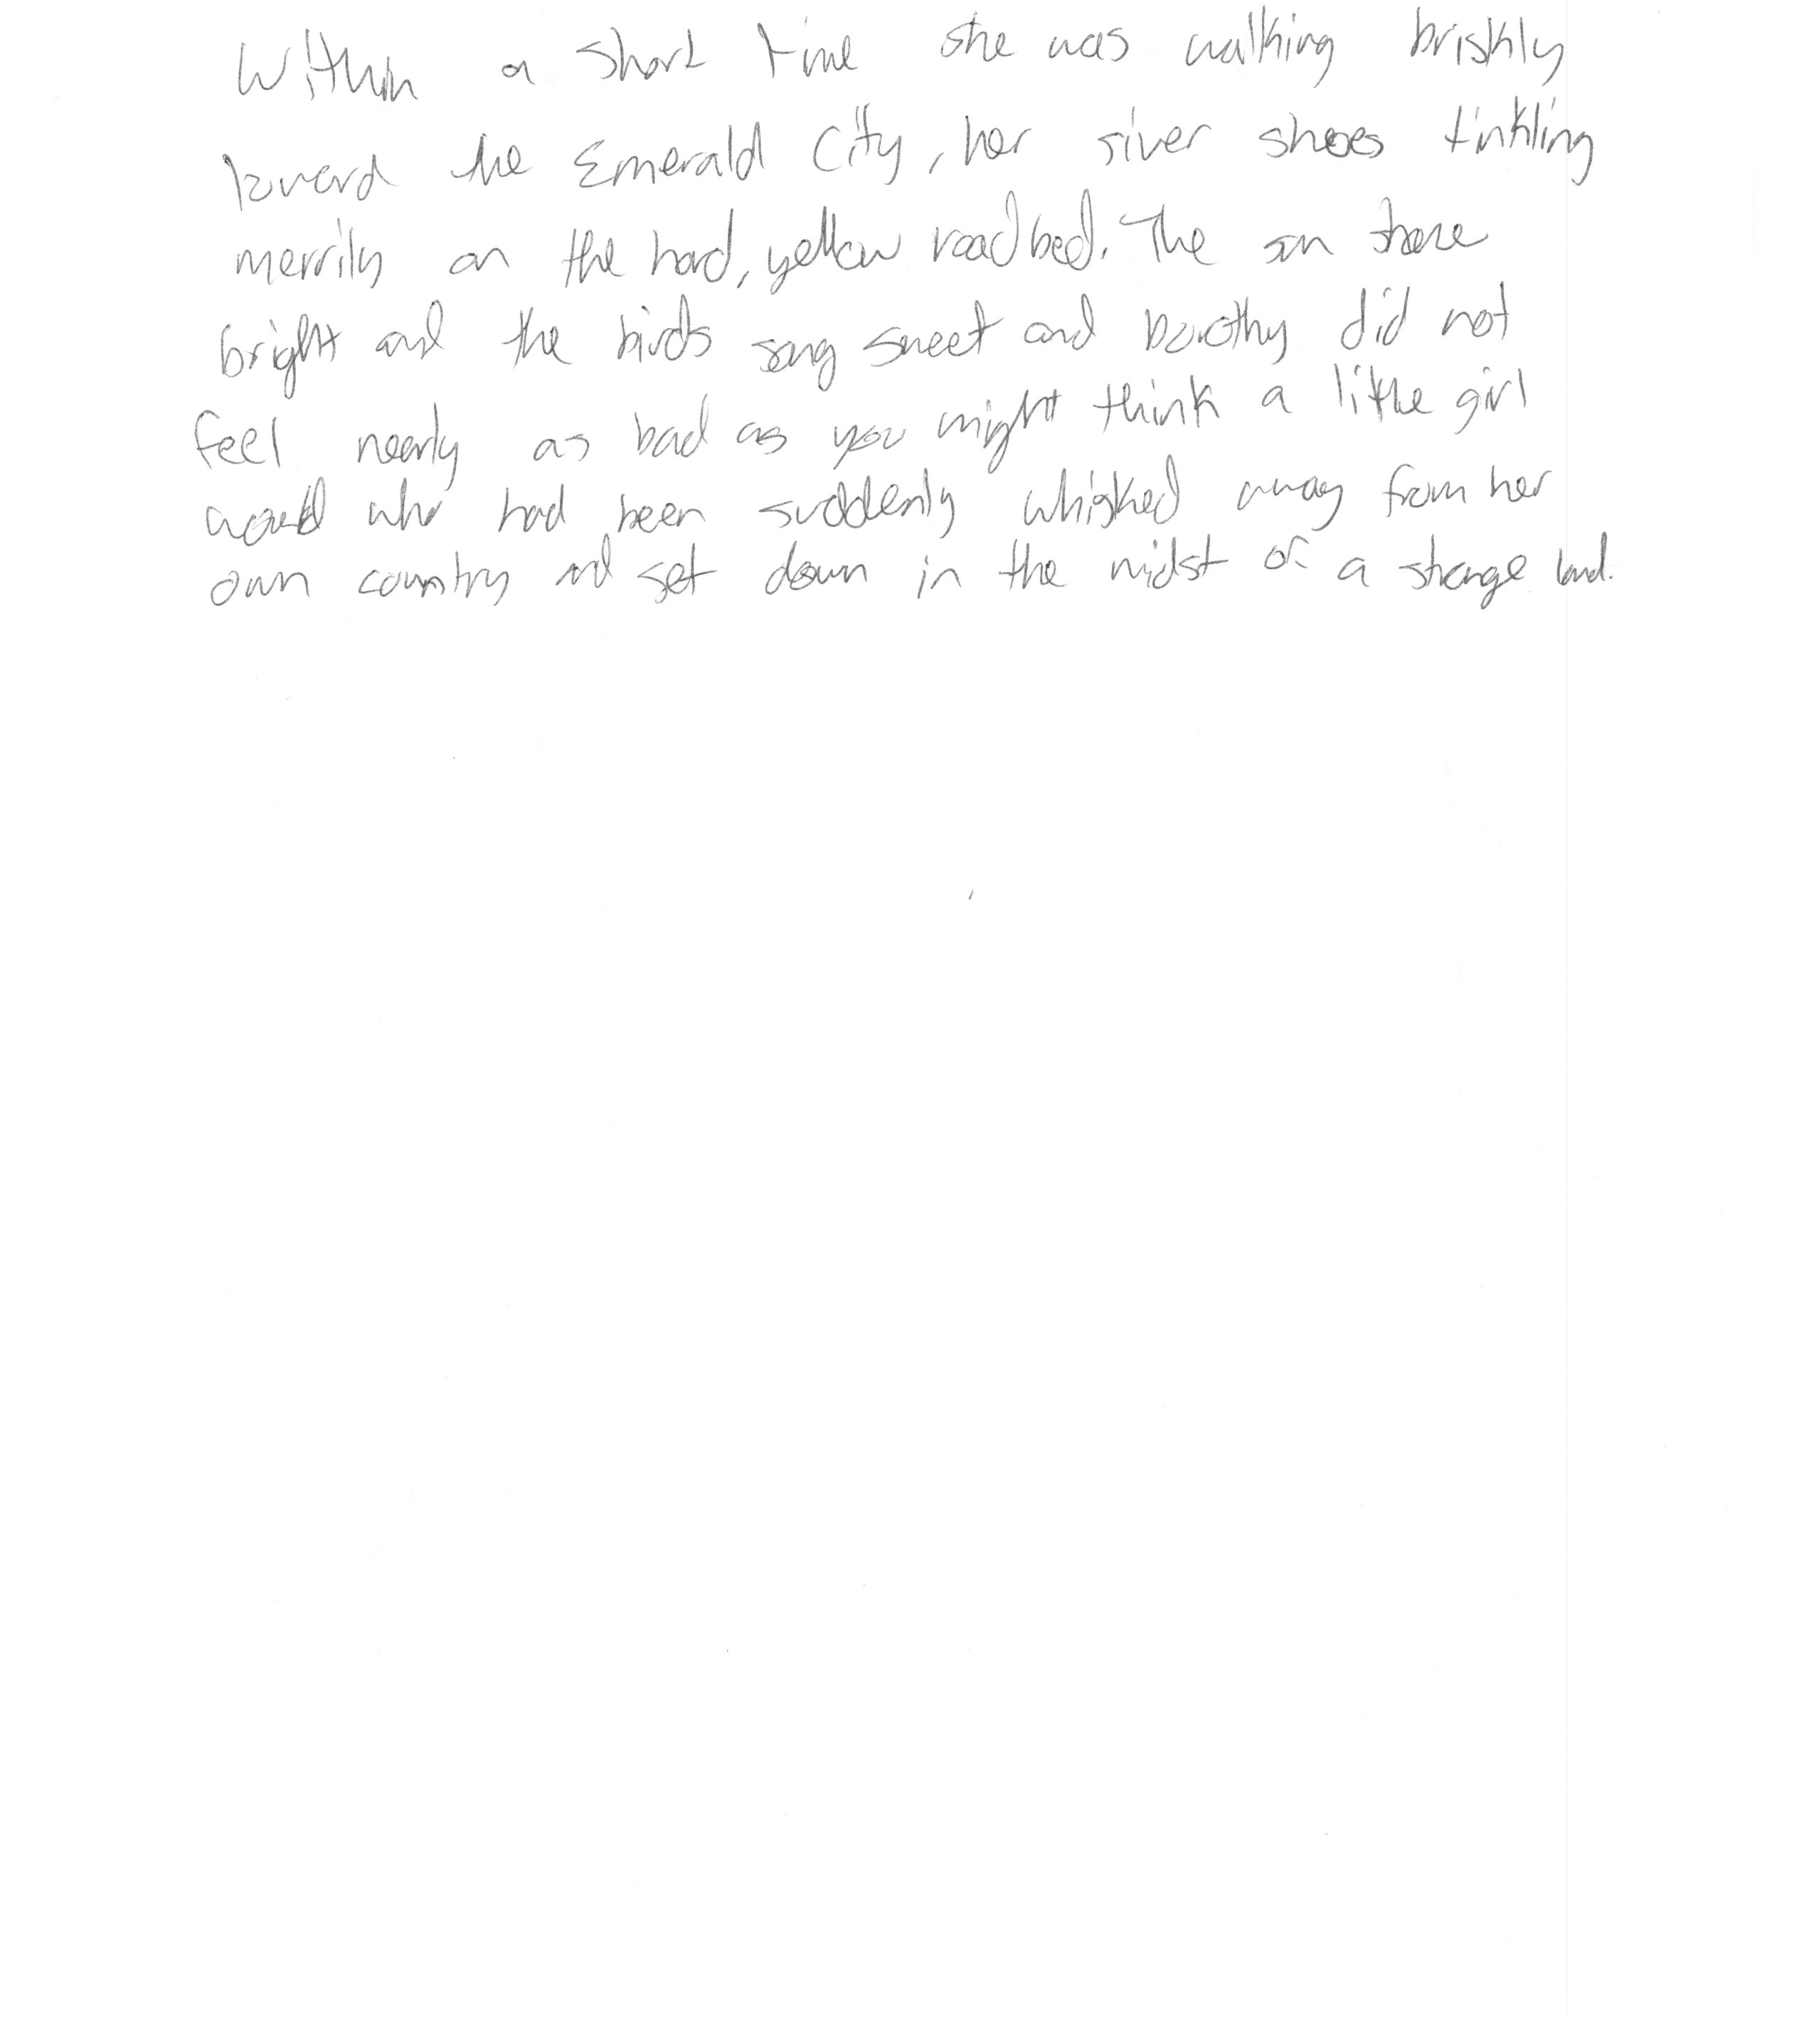 Within a short time she was walking briskly
toward the Emerald City, her siver shoes tinkling
merrily on the hard, yellow roadbed. The sun shone
bright and the birds sang sweet and Dorothy did not
feel nearly as bad as you might think a little girl
would who had been suddenly whisked away from her
own country and set down in the midst of a strange land.